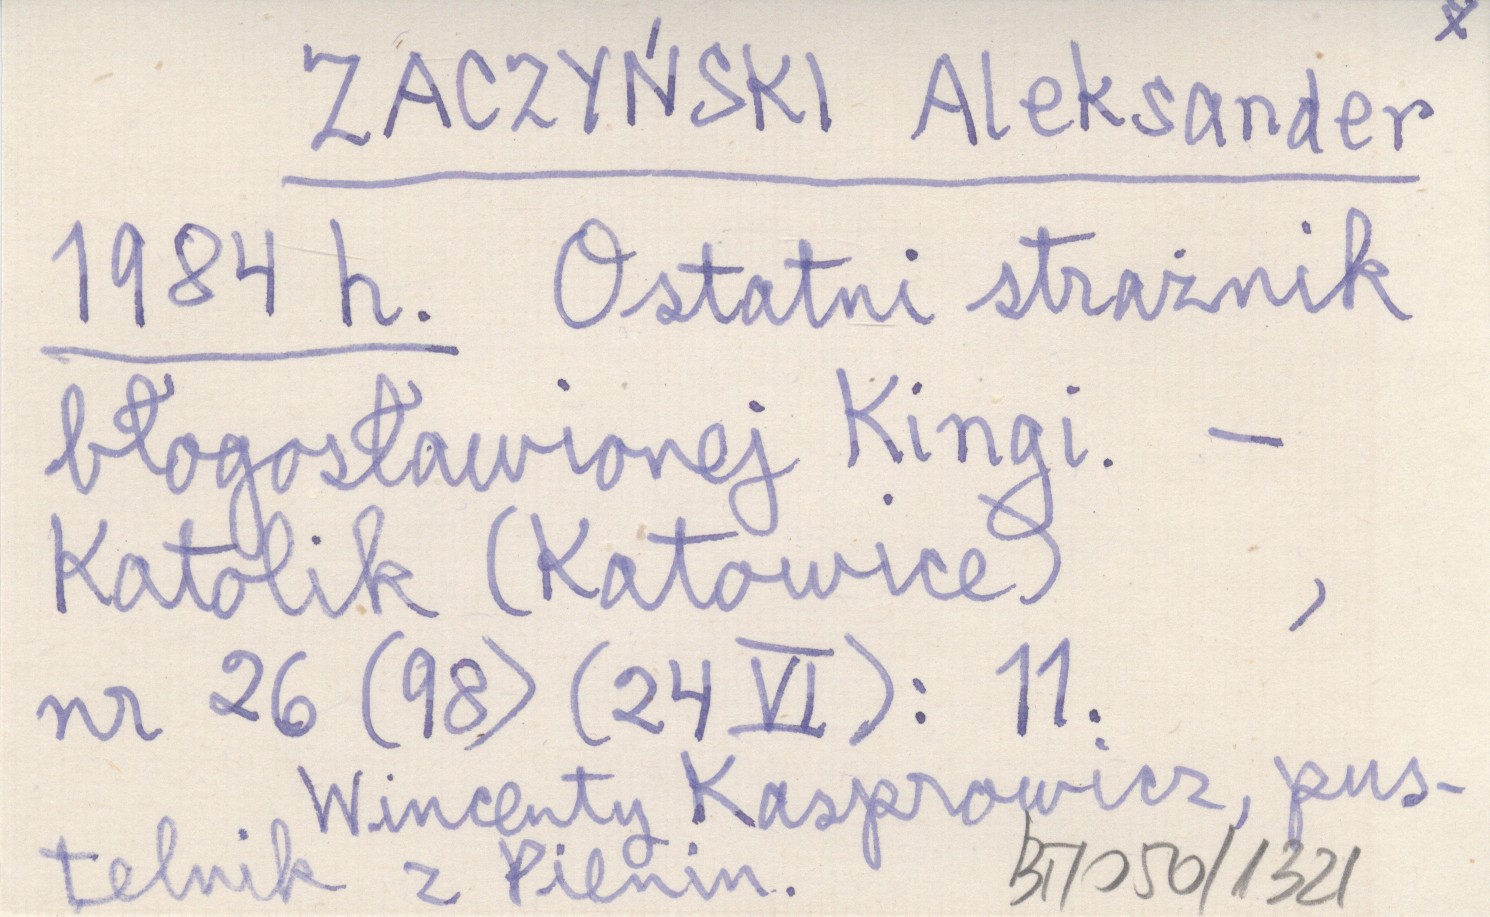 x
ZACZYŃSKI Aleksander
1984 h. Ostatni strażnik
błogosławionej Kingi. –
Katolik (Katowice) ,
nr 26 (98) (24 VI): 11.
Wincenty Kasprowicz, pus-
telnik z Pienin.
/050/1321